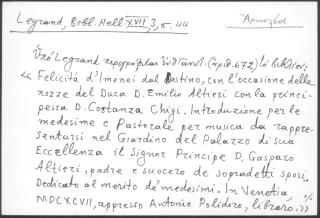 Legrand, Bibl. Hell. XVII, 3, σ. 44
Ἀρμοζία
Ὑπὸ Legrand περιγράφεται (ἀριθ. 672) τὸ βιβλίον:
« Felicità d'Imenei dal Destino, con l'occasione delle
nozze del Duca D. Emilio Altieri con la princi-
pessa D. Costanza Chigi. Introduzione per le
medesime e Pastorale per musica da rappre-
sentarsi nel Giardino del Palazzo di sua
Eccellenza il Signor Principe D. Gasparo
Altieri, padre e suocero de sopradetti sposi.
Dedicato al merito de' medesimi. In Venetia,
MDCXCVII, appresso Antonio Polidoro, libraro. »